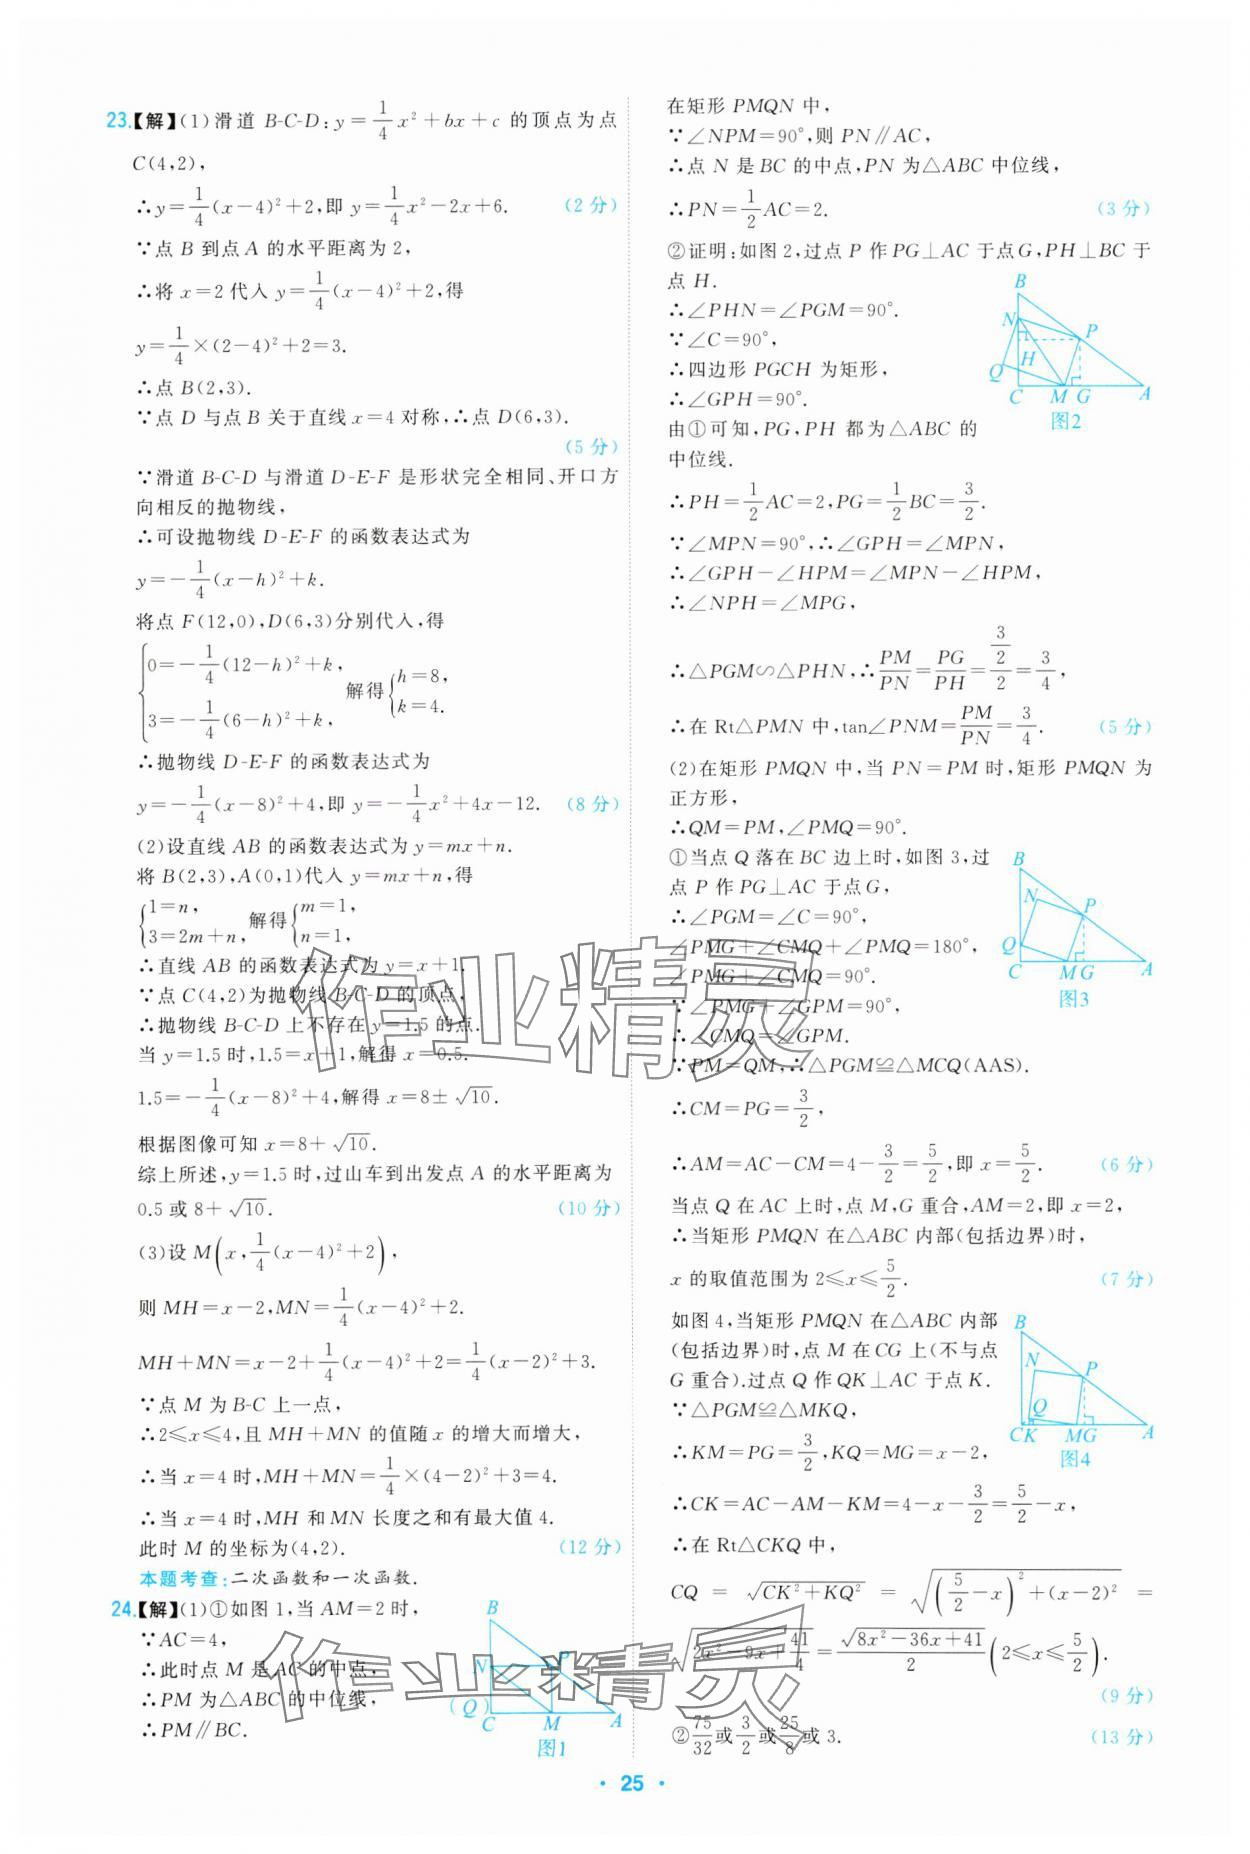 23.【解】(1)滑道 B-C-D：y=1/4 x²+bx+c 的顶点为点
C(4,2),
∴y=1/4(x-4)²+2,即 y=1/4x²-2x+6. (2 分)
∵点 B 到点 A 的水平距离为 2,
∴将 x=2 代入 y=1/4(x-4)²+2,得
y=1/4×(2-4)²+2=3.
∴点 B(2,3).
∵点 D 与点 B 关于直线 x=4 对称,∴点 D(6,3).
(5 分)
∵滑道 B-C-D 与滑道 D-E-F 是形状完全相同、开口方
向相反的抛物线,
∴可设抛物线 D-E-F 的函数表达式为
y=-1/4(x-h)²+k.
将点 F(12,0),D(6,3)分别代入,得
{0=-1/4(12-h)²+k, 3=-1/4(6-h)²+k, 解得{h=8, k=4.
∴抛物线 D-E-F 的函数表达式为
y=-1/4(x-8)²+4,即 y=-1/4x²+4x-12. (8 分)
(2)设直线 AB 的函数表达式为 y=mx+n.
将 B(2,3),A(0,1)代入 y=mx+n,得
{1=n, 3=2m+n, 解得{m=1, n=1,
∴直线 AB 的函数表达式为 y=x+1.
∵点 C(4,2)为抛物线 B-C-D 的顶点,
∴抛物线 B-C-D 上不存在 y=1.5 的点.
当 y=1.5 时,1.5=x+1,解得 x=0.5.
1.5=-1/4(x-8)²+4,解得 x=8±√10.
根据图像可知 x=8+√10.
综上所述,y=1.5 时,过山车到出发点 A 的水平距离为
0.5 或 8+√10. (10 分)
(3)设 M(x,1/4(x-4)²+2),
则 MH=x-2,MN=1/4(x-4)²+2.
MH+MN=x-2+1/4(x-4)²+2=1/4(x-2)²+3.
∵点 M 为 B-C 上一点,
∴2≤x≤4,且 MH+MN 的值随 x 的增大而增大,
∴当 x=4 时,MH+MN=1/4×(4-2)²+3=4.
∴当 x=4 时,MH 和 MN 长度之和有最大值 4.
此时 M 的坐标为(4,2). (12 分)
本题考查:二次函数和一次函数.
24.【解】(1)①如图 1,当 AM=2 时,
∵AC=4,
∴此时点 M 是 AC 的中点,
∴PM 为△ABC 的中位线,
∴PM∥BC.
B
N
P
(Q)
C
M
A
图1
在矩形 PMQN 中,
∵∠NPM=90°,则 PN∥AC,
∴点 N 是 BC 的中点,PN 为△ABC 中位线,
∴PN=1/2AC=2. (3 分)
②证明:如图 2,过点 P 作 PG⊥AC 于点G,PH⊥BC 于
点 H.
∴∠PHN=∠PGM=90°.
∵∠C=90°,
∴四边形 PGCH 为矩形,
∴∠GPH=90°.
由①可知,PG,PH 都为△ABC 的
中位线.
B
N
P
H
Q
C
M
G
A
图2
∴PH=1/2AC=2,PG=1/2BC=3/2.
∵∠MPN=90°,∴∠GPH=∠MPN,
∴∠GPH-∠HPM=∠MPN-∠HPM,
∴∠NPH=∠MPG,
∴△PGM∽△PHN,∴PM/PN=PG/PH=(3/2)/2=3/4,
∴在 Rt△PMN 中,tan∠PNM=PM/PN=3/4. (5 分)
(2)在矩形 PMQN 中,当 PN=PM 时,矩形 PMQN 为
正方形,
∴QM=PM,∠PMQ=90°.
①当点 Q 落在 BC 边上时,如图 3,过
点 P 作 PG⊥AC 于点G,
∴∠PGM=∠C=90°,
∠PMG+∠CMQ+∠PMQ=180°,
∠PMG+∠CMQ=90°.
∵∠PMG+∠GPM=90°,
∴∠CMQ=∠GPM.
∵PM=QM,∴△PGM≌△MCQ(AAS).
B
N
P
Q
C
M
G
A
图3
∴CM=PG=3/2,
∴AM=AC-CM=4-3/2=5/2,即 x=5/2. (6 分)
当点 Q 在 AC 上时,点 M,G 重合,AM=2,即 x=2,
∴当矩形 PMQN 在△ABC 内部(包括边界)时,
x 的取值范围为 2≤x≤5/2. (7 分)
如图 4,当矩形 PMQN 在△ABC 内部
(包括边界)时,点 M 在 CG 上(不与点
G 重合).过点 Q 作 QK⊥AC 于点 K.
∵△PGM≌△MKQ,
∴KM=PG=3/2,KQ=MG=x-2,
B
N
P
Q
C
K
M
G
A
图4
∴CK=AC-AM-KM=4-x-3/2=5/2-x,
∴在 Rt△CKQ 中,
CQ = √(CK²+KQ²) = √((5/2-x)²+(x-2)²) =
√(2x²-9x+41/4)=√(8x²-36x+41)/2(2≤x≤5/2).
(9 分)
②75/32或3/2或25/8或 3. (13 分)
• 25 •
作业精灵
作业精灵